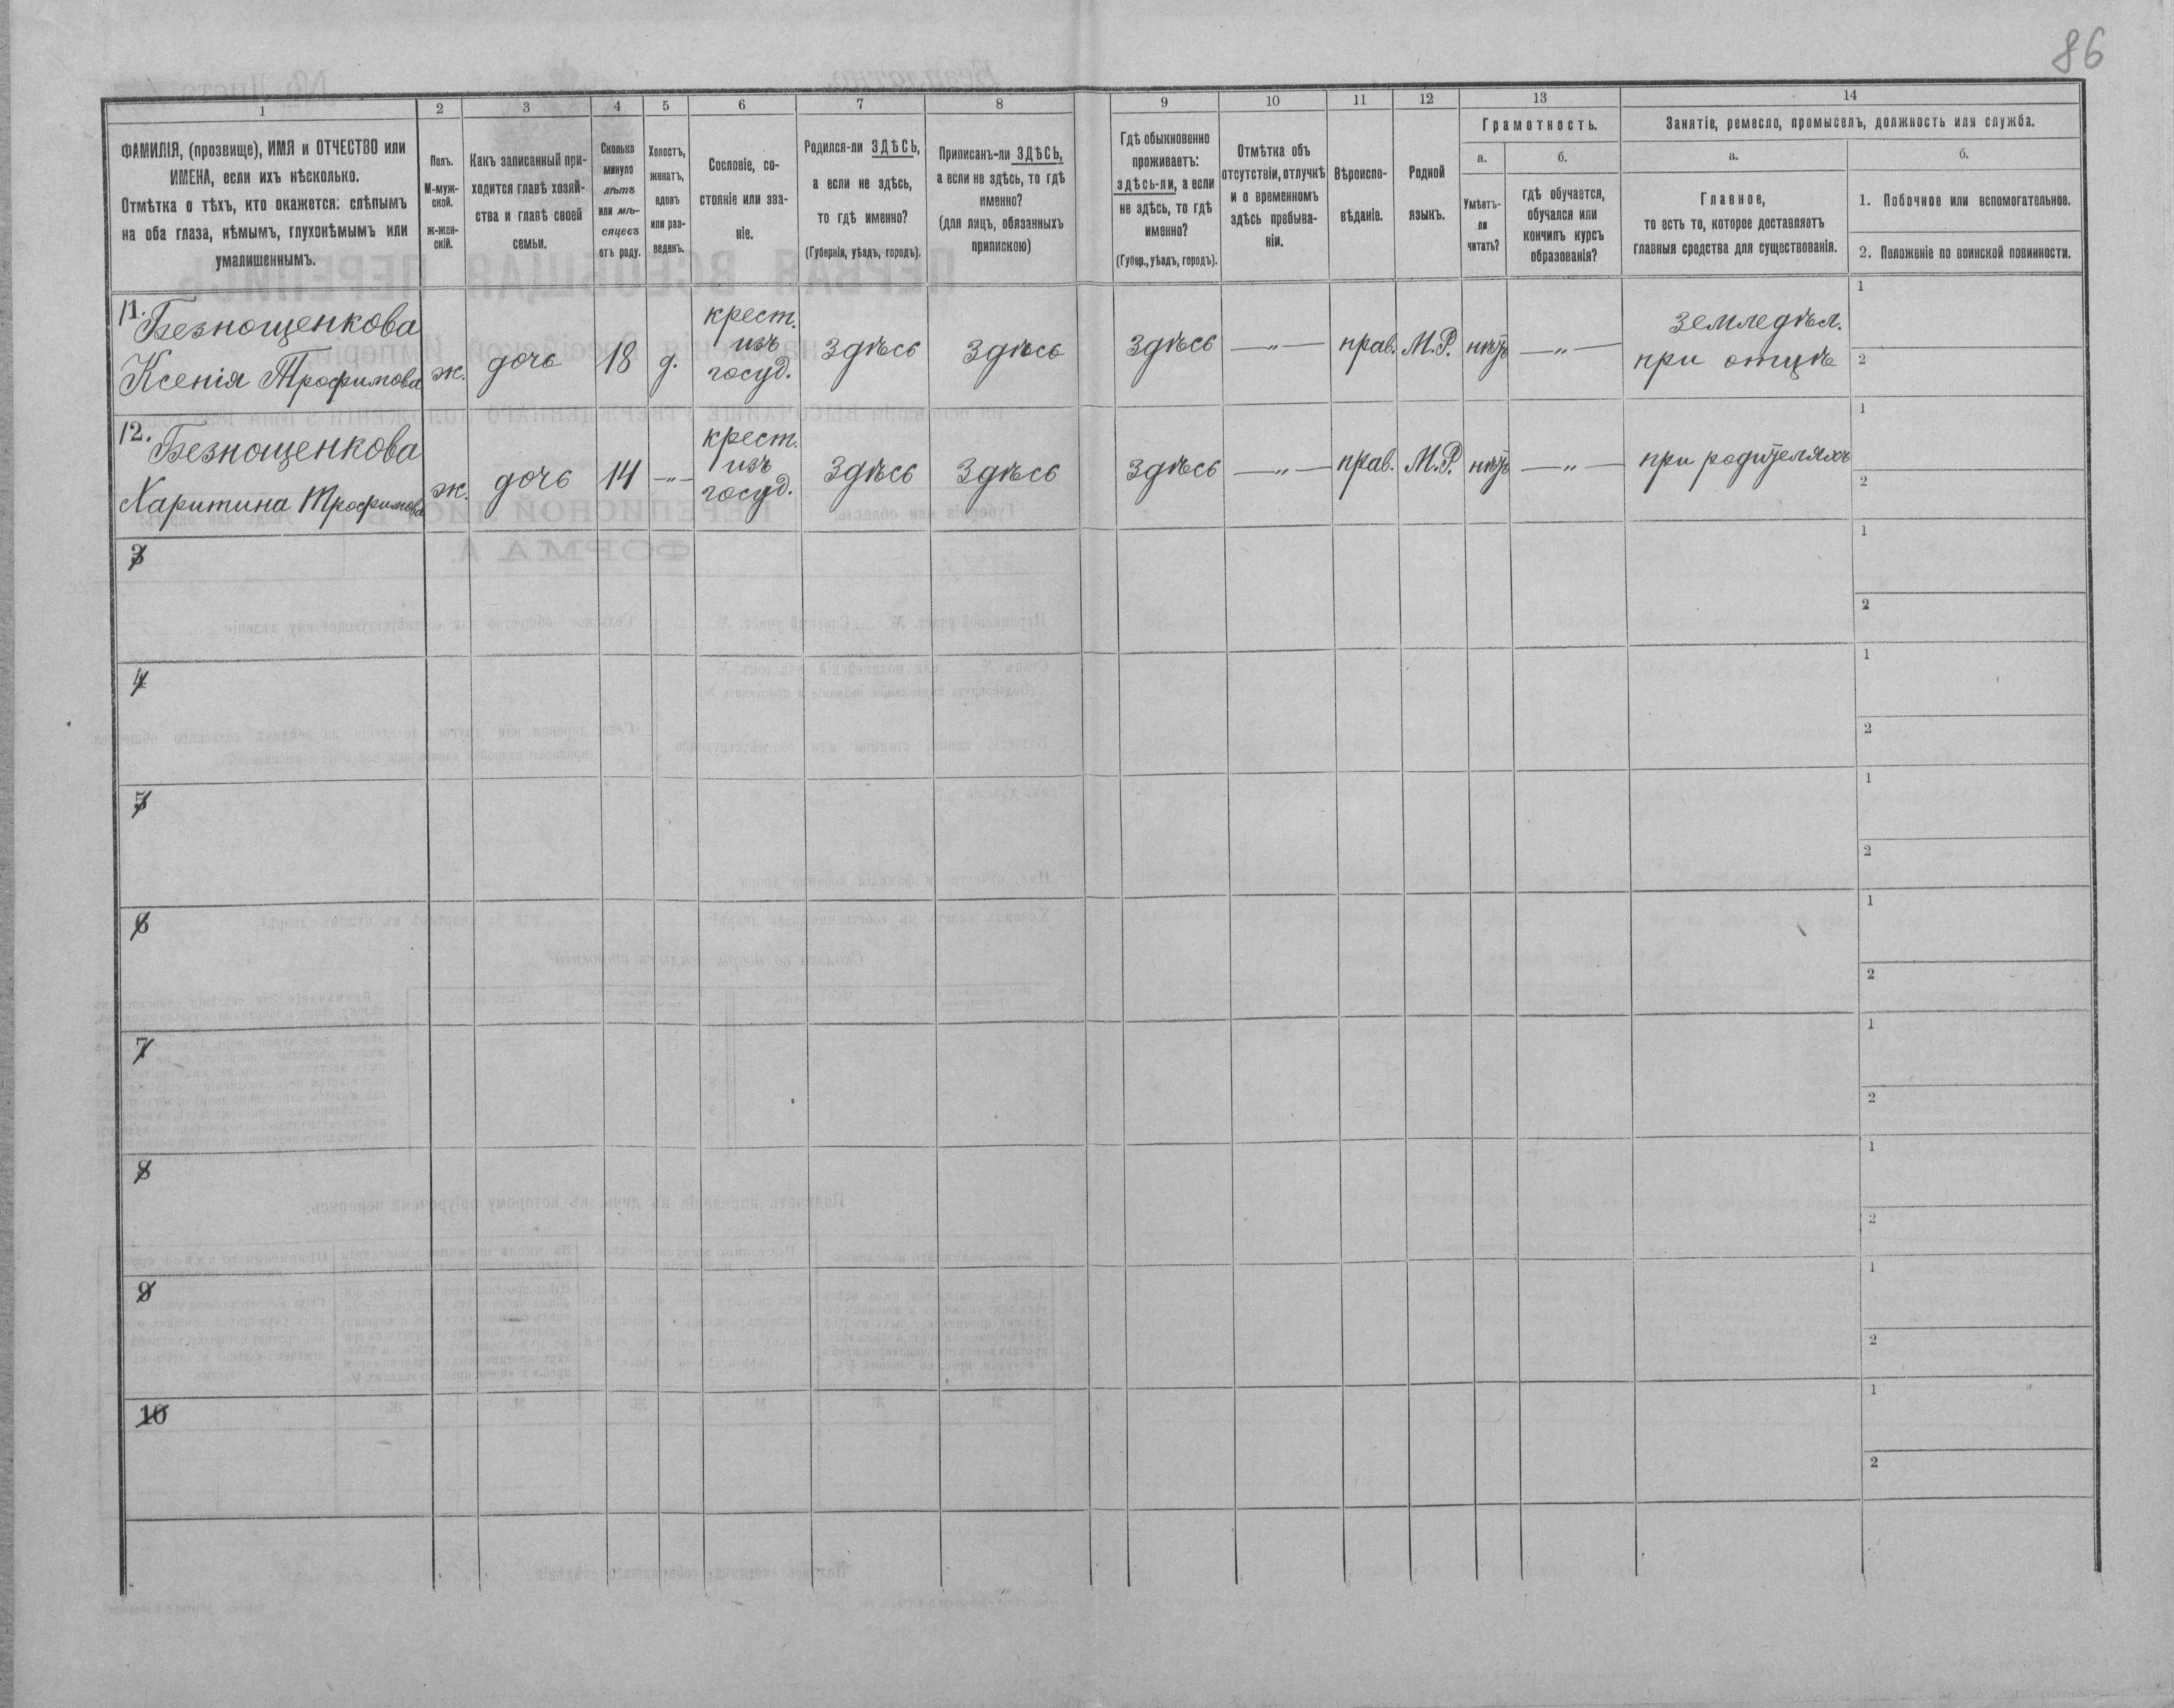 86
1 2 3 4 5 6 7 8 9 10 11 12 13 14
ФАМИЛІЯ, (прозвище), ИМЯ и ОТЧЕСТВО или
ИМЕНА, если ихъ нѣсколько.
Отмѣтка о тѣхъ, кто окажется: слѣпымъ
на оба глаза, нѣмымъ, глухонѣмымъ или
умалишеннымъ.
Полъ.
М-муж-
ской.
ж-жен-
скій.
Какъ записанный при-
ходится главѣ хозяй-
ства и главѣ своей
семьи.
Сколько
минуло
лѣтъ
или мѣ-
сяцевъ
отъ роду.
Холостъ,
женатъ,
вдовъ
или раз-
веденъ.
Сословіе, со-
стояніе или зва-
ніе.
Родился-ли ЗДѢСЬ,
а если не здѣсь,
то гдѣ именно?
(Губернія, уѣздъ, городъ).
Приписанъ-ли ЗДѢСЬ,
а если не здѣсь, то гдѣ
именно?
(для лицъ, обязанныхъ
припискою)
Гдѣ обыкновенно
проживаетъ:
здѣсь-ли, а если
не здѣсь, то гдѣ
именно?
(Губер., уѣздъ, городъ).
Отмѣтка объ
отсутствіи, отлучкѣ
и о временномъ
здѣсь пребыва-
ніи.
Вѣроиспо-
вѣданіе.
Родной
языкъ.
Грамотность.
а.
Умѣетъ-
ли
читать?
б.
гдѣ обучается,
обучался или
кончилъ курсъ
образованія?
Занятіе, ремесло, промыселъ, должность или служба.
а.
Главное,
то есть то, которое доставляетъ
главныя средства для существованія.
б.
1. Побочное или вспомогательное.
2. Положеніе по воинской повинности.
11. Безнощенкова
Ксенія Трофимова
ж.
дочь
18
д.
крест.
изъ
госуд.
Здѣсь
Здѣсь
Здѣсь
—„—
прав.
М.Р.
нѣтъ
—„—
земледѣл.
при отцѣ
1
2
12. Безнощенкова
Харитина Трофимова
ж.
дочь
14
—„—
крест.
изъ
госуд.
Здѣсь
Здѣсь
Здѣсь
—„—
прав.
М.Р.
нѣтъ
—„—
при родителяхъ
1
2
3
1
2
4
1
2
5
1
2
6
1
2
7
1
2
8
1
2
9
1
2
10
1
2